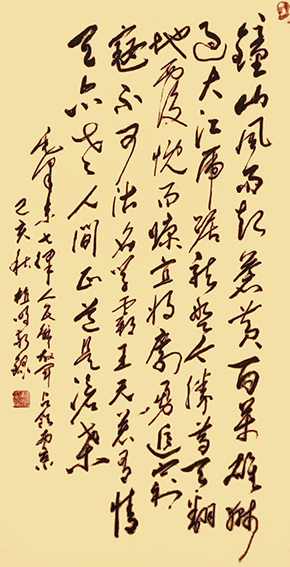 鐘山風雨起蒼黄百萬雄師
过大江虎踞龙盘今勝昔天翻
地覆慨而慷宜将剩勇追窮
寇不可沽名学霸王天若有情
天亦老人間正道是滄桑
毛泽东七律人民解放军占领南京
己亥秋